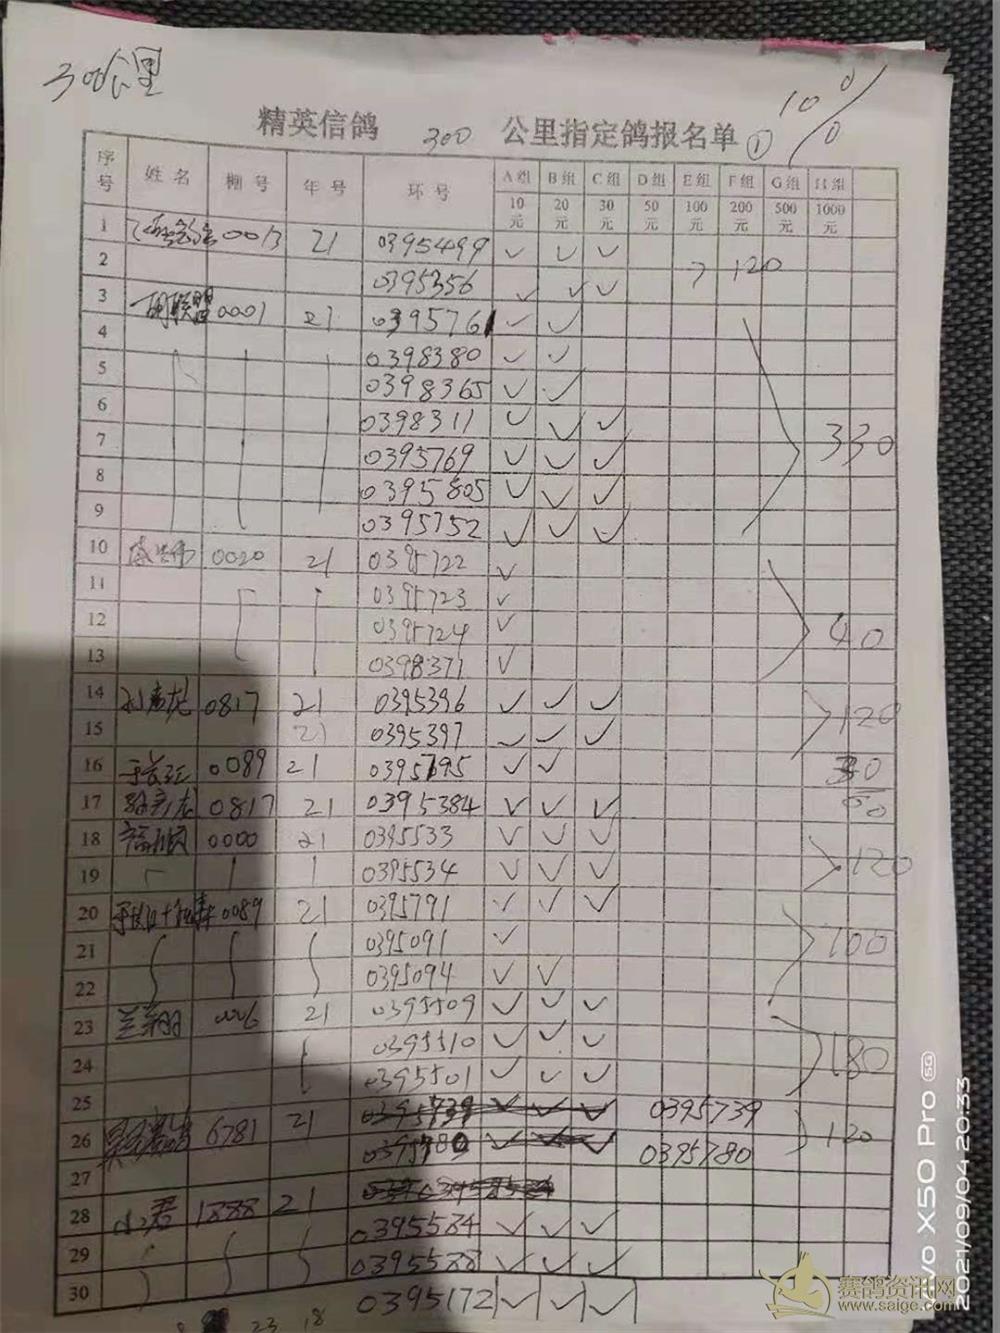 300公里
10%
精英信鸽 300 公里指定鸽报名单 ①
序号 姓名 棚号 年号 环号 A组 B组 C组 D组 E组 F组 G组 H组
10元 20元 30元 50元 100元 200元 500元 1000元
1 0013 21 0395499 ✓ ✓ ✓
2 0395356 ✓ ✓ ✓ 120
3 胡联盟 0001 21 0395761 ✓ ✓
4 0398380 ✓ ✓
5 0398365 ✓ ✓
6 0398311 ✓ ✓ ✓
7 0395769 ✓ ✓ ✓ 330
8 0395805 ✓ ✓ ✓
9 0395752 ✓ ✓ ✓
10 0020 21 0395722 ✓
11 0395723 ✓
12 0395724 ✓ 40
13 0398371 ✓
14 0817 21 0395396 ✓ ✓ ✓ 120
15 21 0395397 ✓ ✓ ✓
16 0089 21 0395795 ✓ ✓ 30
17 0817 21 0395384 ✓ ✓ ✓ 60
18 福顺 0000 21 0395533 ✓ ✓ ✓ 120
19 0395534 ✓ ✓ ✓
20 0089 21 0395791 ✓ ✓ ✓
21 0395091 ✓ 100
22 0395094 ✓ ✓
23 006 21 0395509 ✓ ✓ ✓
24 0395510 ✓ ✓ ✓ 180
0395501 ✓ ✓ ✓
25 0395739 ✓ ✓ ✓ 0395739
26 6781 21 0395780 ✓ ✓ ✓ 0395780 120
27
28 小君 1888 21 0395584 ✓ ✓ ✓
29 0395588 ✓ ✓ ✓
30 0395172 ✓ ✓ ✓
23 18
vivo X50 Pro 5G
2021/09/04 20:33
赛鸽资讯网
www.saige.com